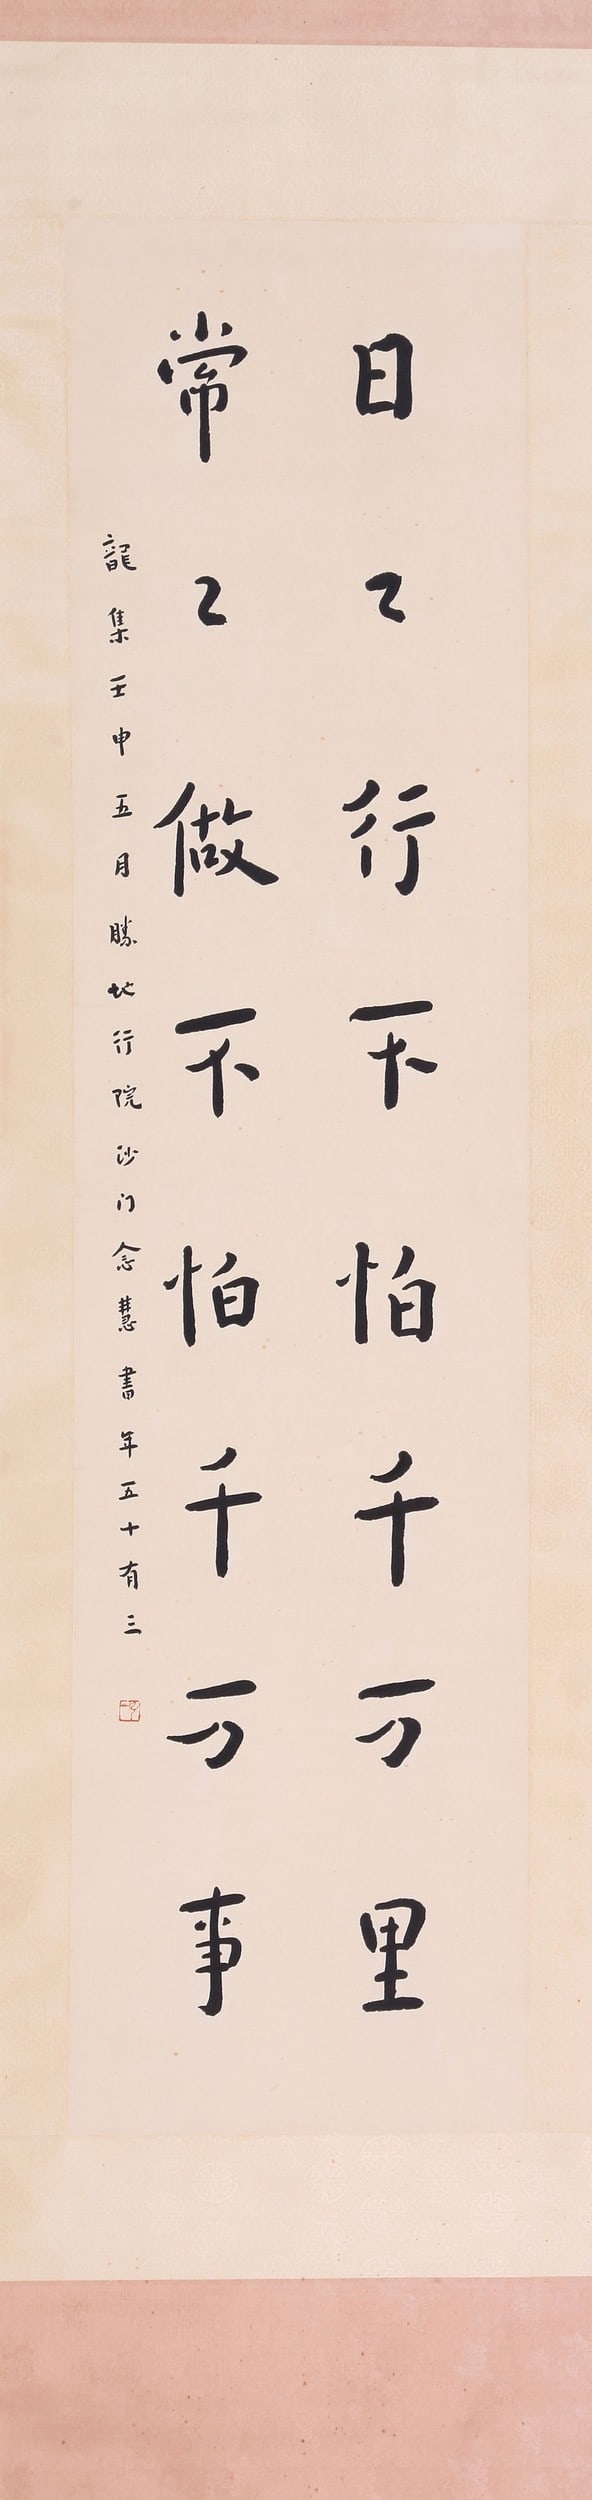 日々行不怕千万里
常々做不怕千万事
龍集壬申五月勝地行院沙门念慧書年五十有三